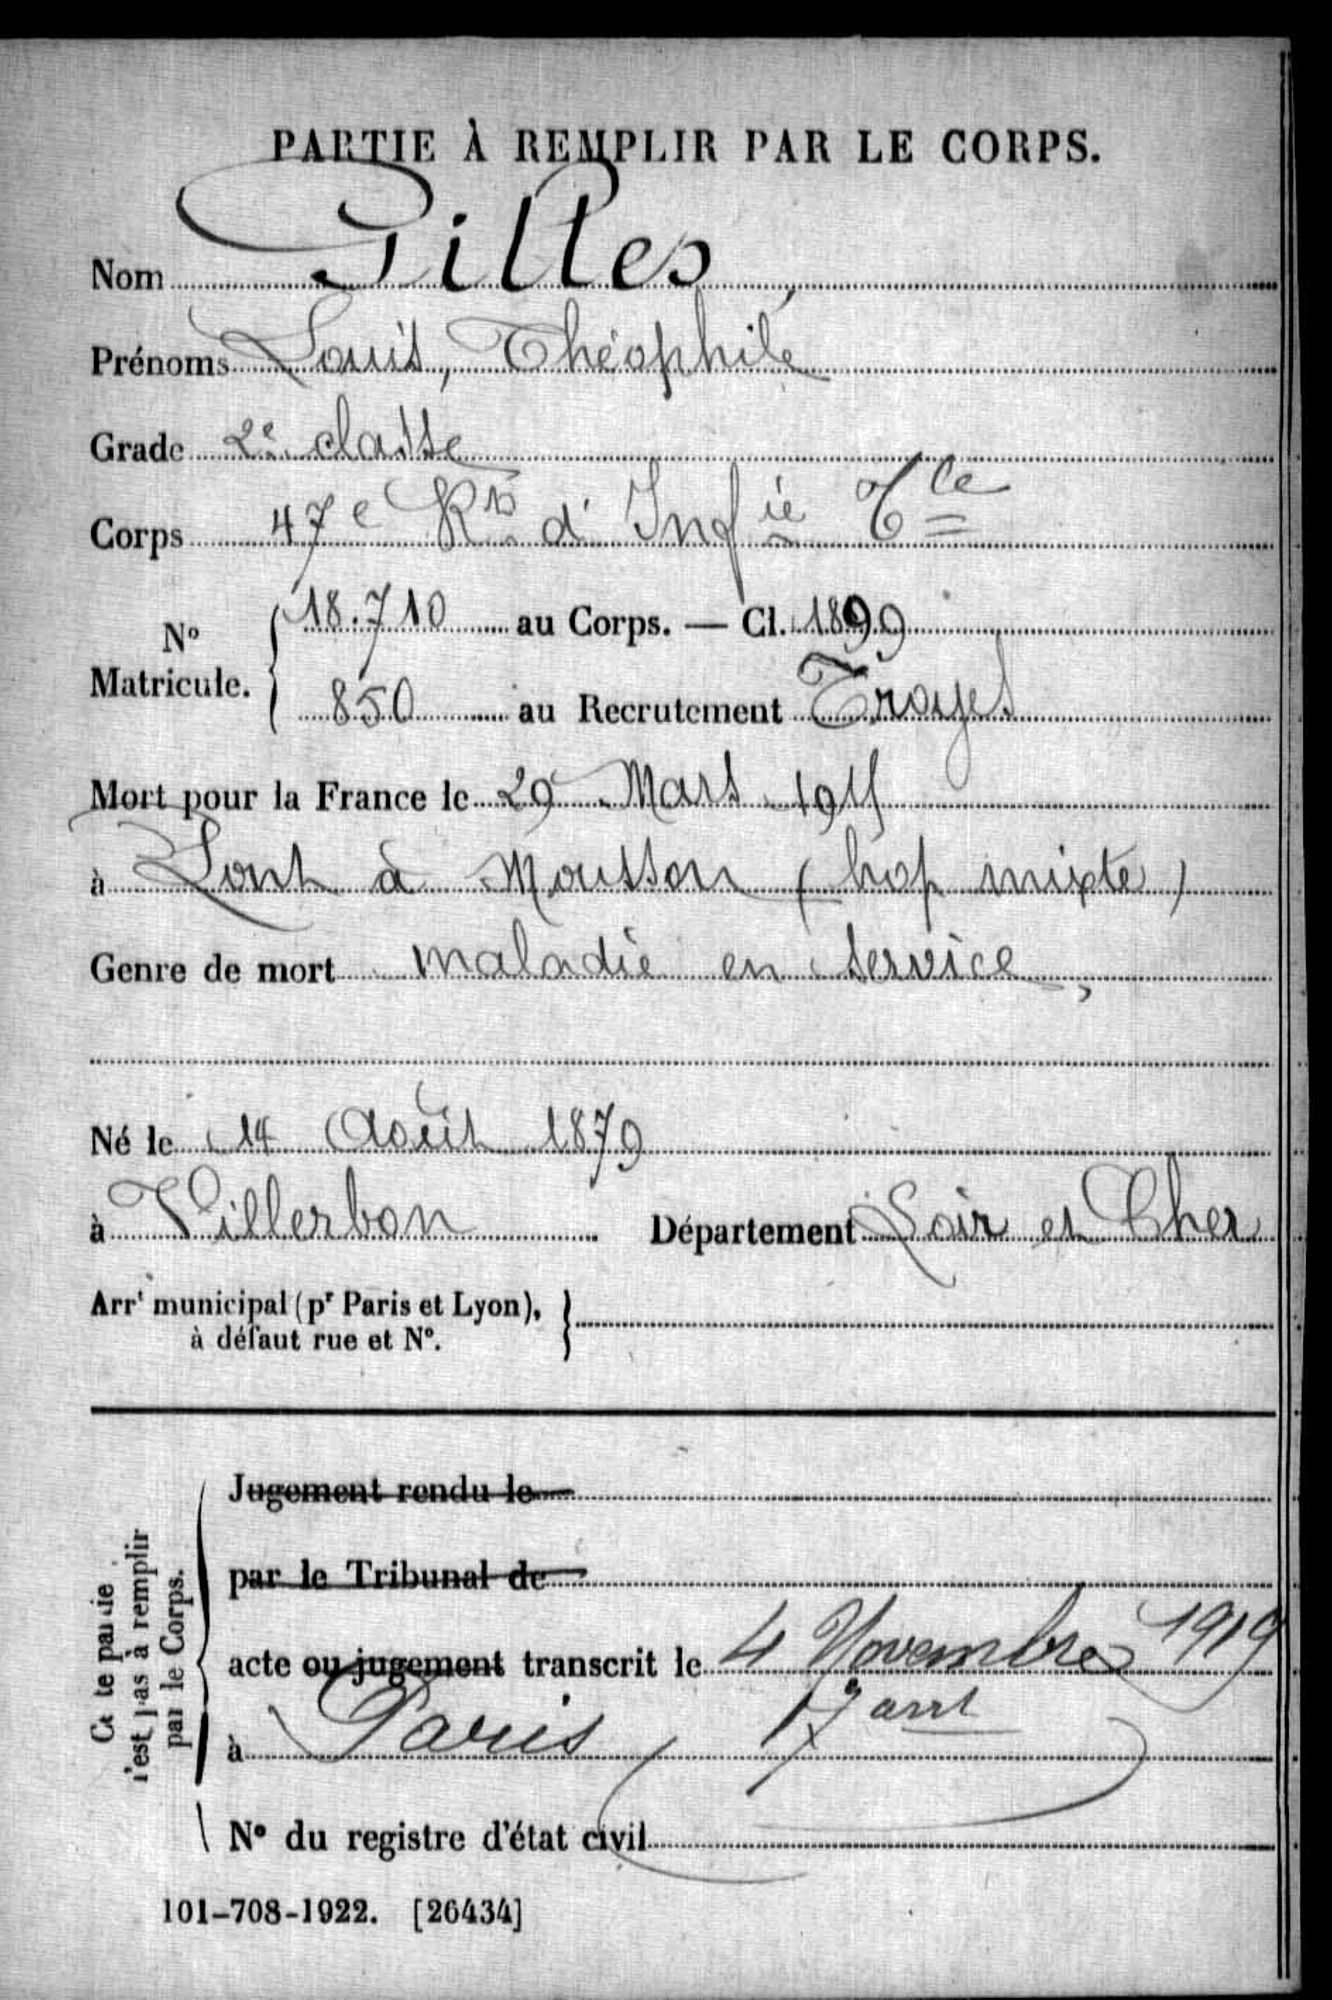 PARTIE À REMPLIR PAR LE CORPS.
Nom Gilles
Prénoms Louis, Théophile
Grade 2e classe
Corps 47e Rt d'Infie Tle
No Matricule. 18.710 au Corps. — Cl. 1899
850 au Recrutement Troyes
Mort pour la France le 29 Mars 1915
à Pont à Mousson (hop mixte)
Genre de mort maladie en service,
Né le 14 Août 1879
à Villerbon Département Loir et Cher
Arrt municipal (pr Paris et Lyon),
à défaut rue et No.
Jugement rendu le
par le Tribunal de
acte ou jugement transcrit le 4 Novembre 1919
à Paris 17 arrt
No du registre d'état civil
Cette partie
n'est pas à remplir
par le Corps.
101-708-1922. [26434]